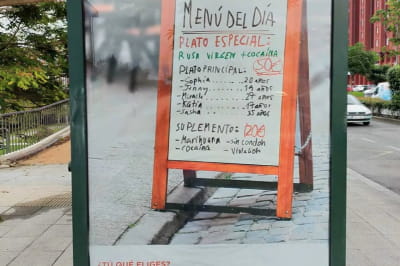 MENÚ DEL DÍA
PLATO ESPECIAL:
RUSA VIRGEN + COCAÍNA
PLATO PRINCIPAL: 50€
- Sophia ........ 20 AÑOS
- Jinny ........ 19 AÑOS
- ........ 27 AÑOS
- Katia ........ 17 AÑOS
- Sasha ........ 35 AÑOS
SUPLEMENTO: 120€
- Marihuana - sin condón
- cocaína - Violación
¿TÚ QUÉ ELIGES?